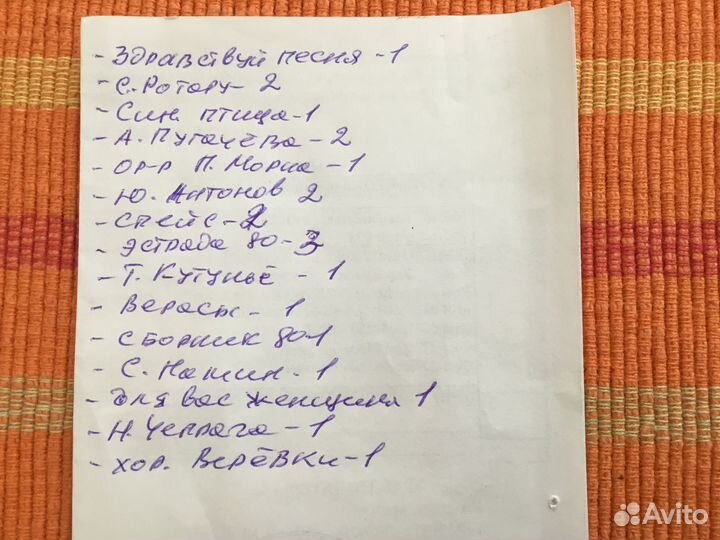 - Здравствуй песня - 1
- С. Ротару - 2
- Син. птица - 1
- А. Пугачёва - 2
- Ор-р П. Мориа - 1
- Ю. Антонов 2
- Спейс - 2
- Эстрада 80 - 3
- Т. Кутуньё - 1
- Верасы - 1
- Сборник 80-1
- С. Намин - 1
- Для вас женщина 1
- Н. Чепрага - 1
- хор. Верёвки - 1
Avito